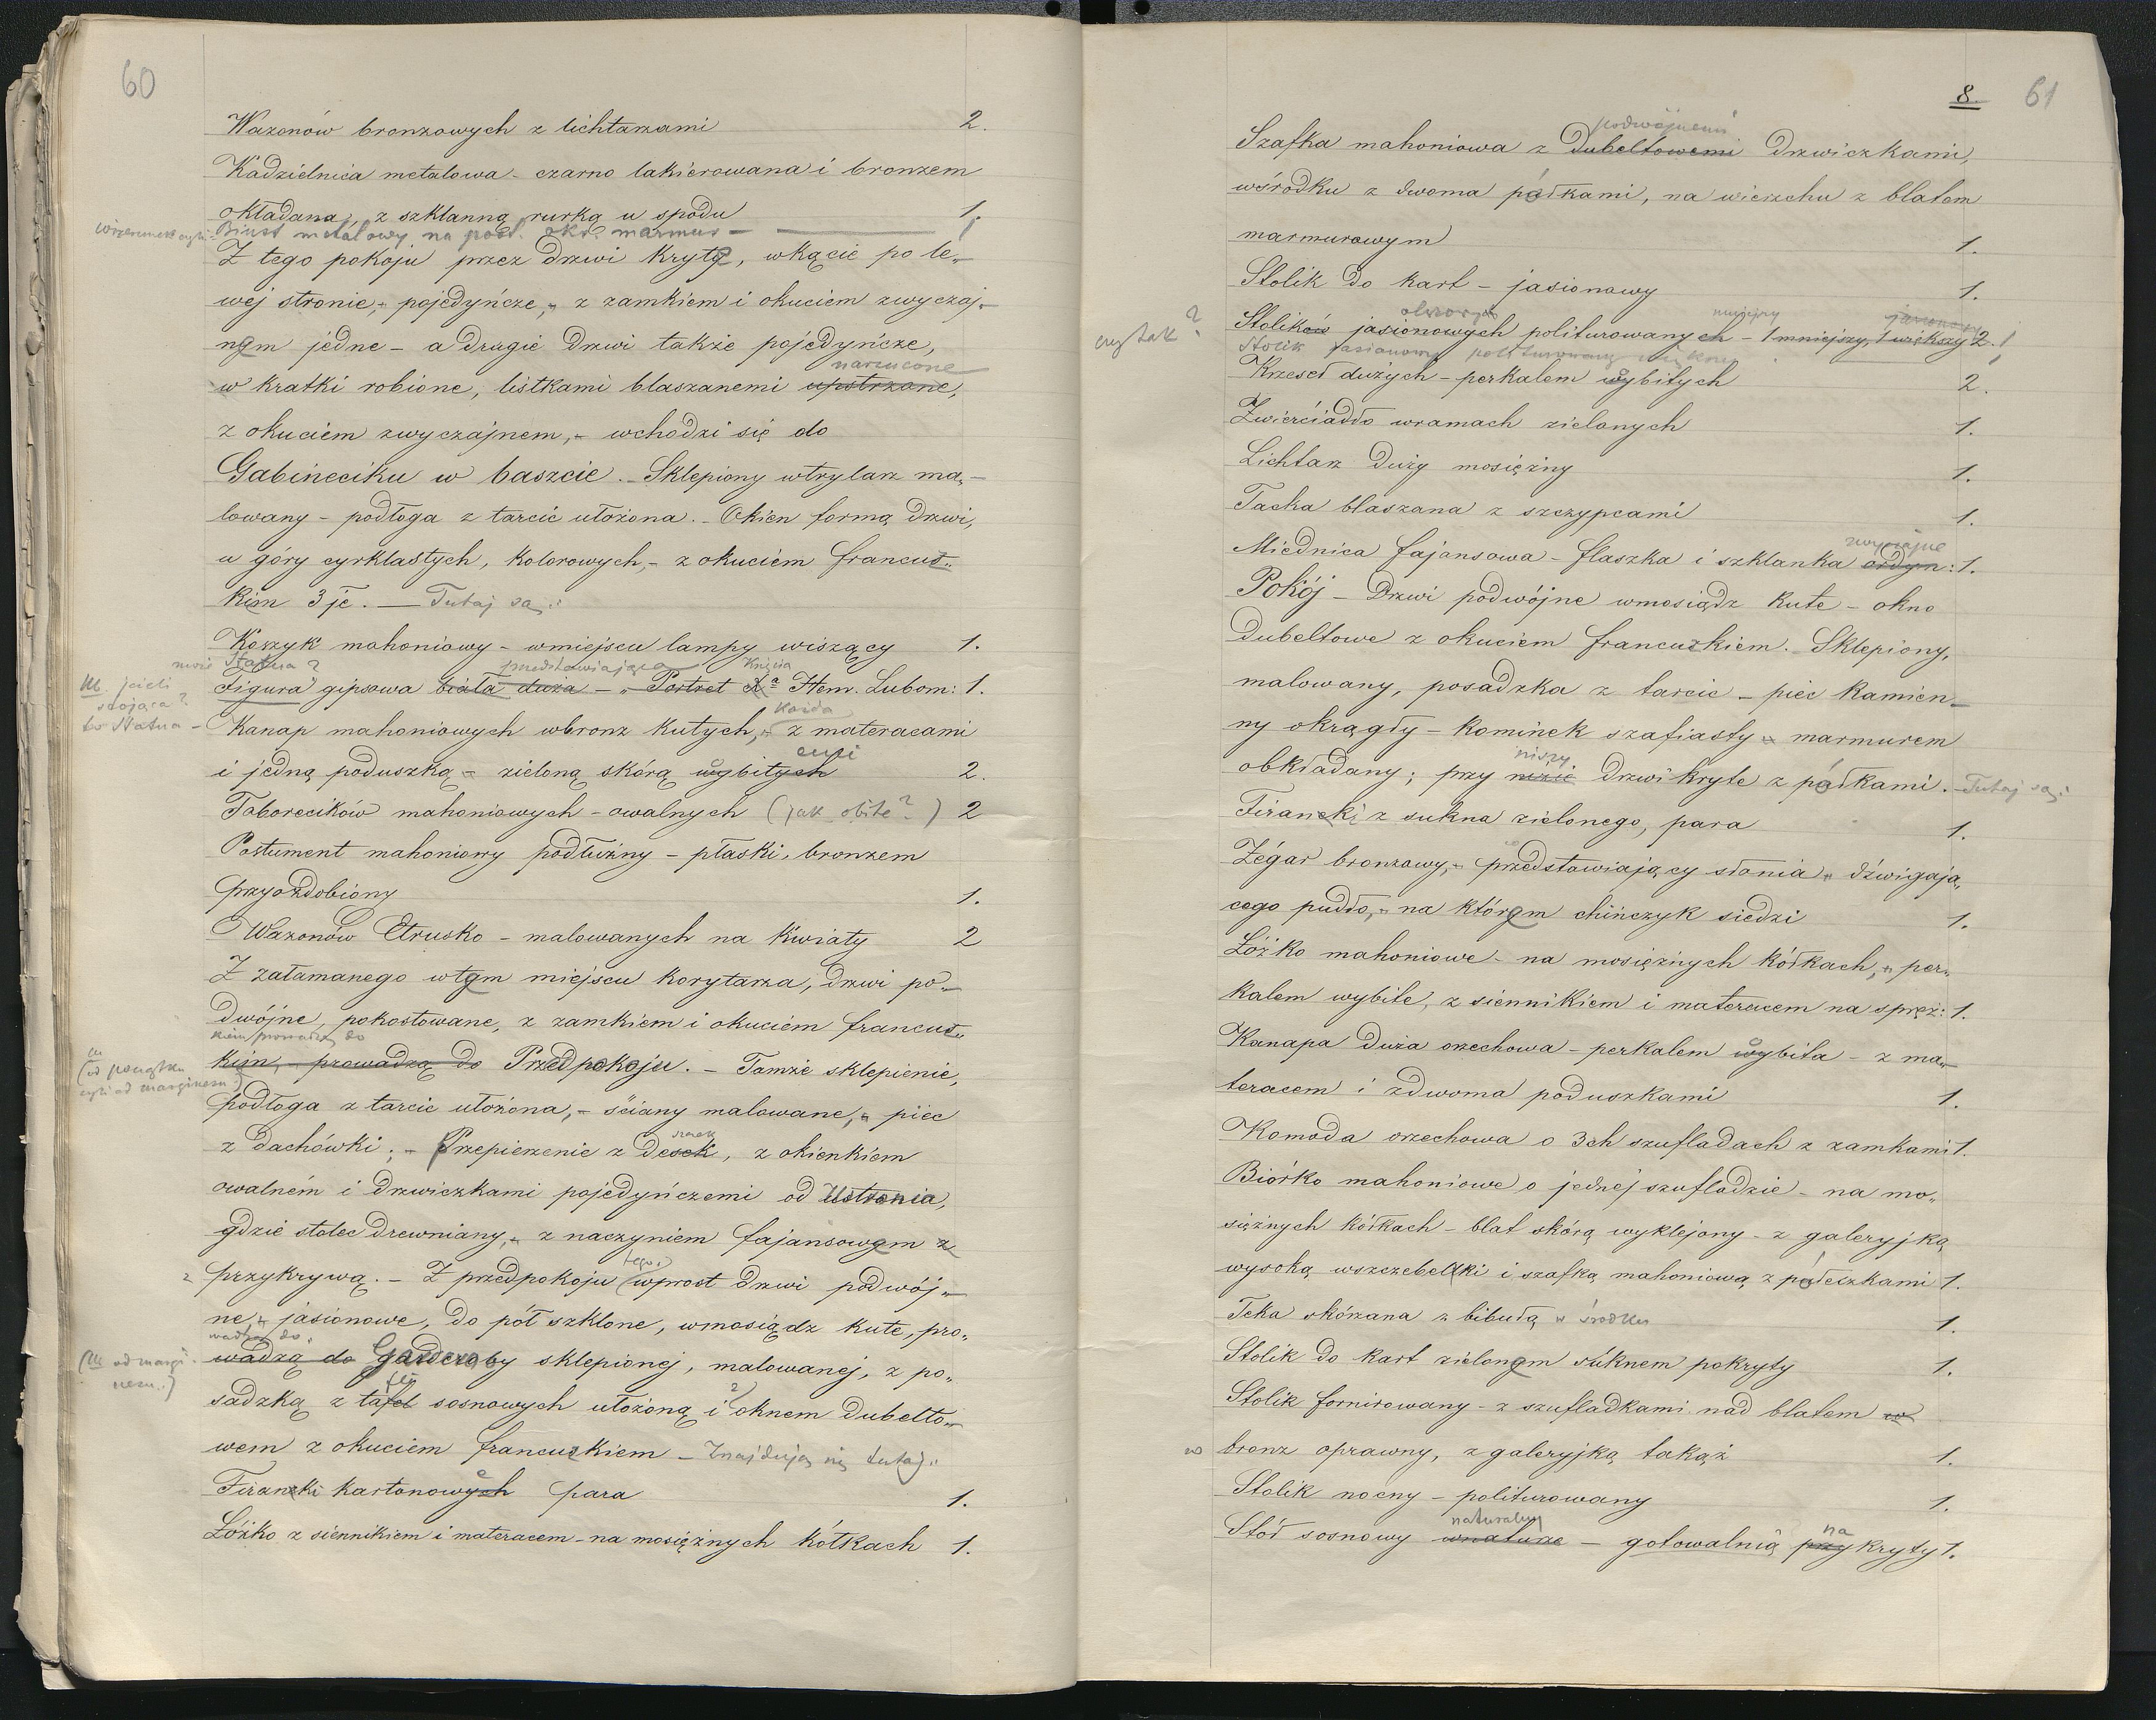 60
Wazonów bronzowych z lichtarzami 2.
Kadzielnica metalowa - czarno lakierowana i bronzem
okładana, z szklanną rurką u spodu 1.
Biust metalowy na post. okr. marmur — 1
Z tego pokoju przez drzwi kryte, wkącie po le-
wéj stronie, - pojedyńcze, - z zamkiem i okuciem zwyczaj-
nem jedne - a drugie drzwi także pojedyńcze,
narzucone
w kratki robione, listkami blaszanemi upstrzone,
z okuciem zwyczajnem, - wchodzi się do
Gabineciku w baszcie. - Sklepiony wtrylarz ma-
lowany - podłoga z tarcic ułożona. - Okien formą drzwi,
u góry cyrklastych, kolorowych, - z okuciem francuz-
kim 3je. — Tutaj są:
Koszyk mahoniowy - wmiejscu lampy wiszący 1.
może Statua?
przedstawiająca Księcia
Figura gipsowa biała duża - "Portret Xa Hen. Lubom: 1.
NB. jeżeli
stojąca?
to Statua -
każda
Kanap mahoniowych wbronz kutych, - z materacami
emi
i jedną poduszką - zieloną skórą wybitych 2.
Taborecików mahoniowych - owalnych (jak obite?) 2
Postument mahoniowy podłużny - płaski, bronzem
przyozdobiony 1.
Wazonów Etrusko - malowanych na kwiaty 2
Z załamanego wtem miejscu korytarza, drzwi po-
dwójne, pokostowane, z zamkiem i okuciem francuz-
kiem prowadzą do
kim, - prowadzą do Przedpokoju. - Tamże sklepienie,
(od początku
czyli od marginesu)
podłoga z tarcic ułożona, - ściany malowane, - piec
z dachówki; - Przepierzenie z desek, z okienkiem
owalném i drzwiczkami pojedyńczemi od Ustronia,
gdzie stolec drewniany, - z naczyniem fajansowem z
tegoż
z przykrywą. - Z przedpokoju wprost drzwi podwój-
ne, - jasionowe, do pół szklone, wmosiądz kute, pro-
wadzą do
wadzą do Garderoby sklepionej, malowanej, z po-
(NB od margi-
nesu.)
sadzką z tafel sosnowych ułożoną i oknem dubelto-
wem z okuciem francuzkiem - Znajdują się tutaj:
Firanki kartonowych para 1.
Łóżko z siennikiem i materacem - na mosiężnych kółkach 1.
8. 61
podwójnemi
Szafka mahoniowa z dubeltowemi drzwiczkami,
wśrodku z dwoma półkami, na wierzchu z blatem
marmurowym 1.
Stolik do kart - jasionowy 1.
czy tak?
Stolików jasionowych politurowanych - 1 mniejszy, 1 większy 2.
Stolik jasionowy politurowany większy
Krzeseł dużych - perkalem wybitych 2.
Zwierciadło wramach zielonych 1.
Lichtarz duży mosiężny 1.
Tacka blaszana z szczypcami 1.
zwyczajne
Miednica fajansowa - flaszka i szklanka ordyn: 1.
Pokój - Drzwi podwójne wmosiądz kute - okno
dubeltowe z okuciem francuzkiem. - Sklepiony,
malowany, posadzka z tarcic - piec kamien-
ny okrągły - kominek szafiasty - marmurem
niszy
obkładany; przy nizie drzwi kryte z półkami. - Tutaj są:
Firanki z sukna zielonego, para 1.
Zégar bronzowy, - przedstawiający słonia - dźwigają-
cego pudło, - na którem chińczyk siedzi 1.
Łóżko mahoniowe - na mosiężnych kółkach, - per-
kalem wybite, z siennikiem i materacem na spręż: 1.
Kanapa duża orzechowa - perkalem wybita - z ma-
teracem i zdwoma poduszkami 1.
Komoda orzechowa o 3ch szufladach z zamkami 1.
Biórko mahoniowe o jednej szufladzie - na mo-
siężnych kółkach - blat skórą wyklejony - z galeryjką
wysoką wszczebelki i szafką mahoniową z półeczkami 1.
Teka skórzana z bibułą w środku 1.
Stolik do kart zielonem suknem pokryty 1.
Stolik fornirowany - z szufladkami nad blatem w
w bronz oprawny, z galeryjką takąż 1.
Stolik nocny - politurowany 1.
naturalny na
Stół sosnowy wnaturze - gotowalnią przykryty 1.